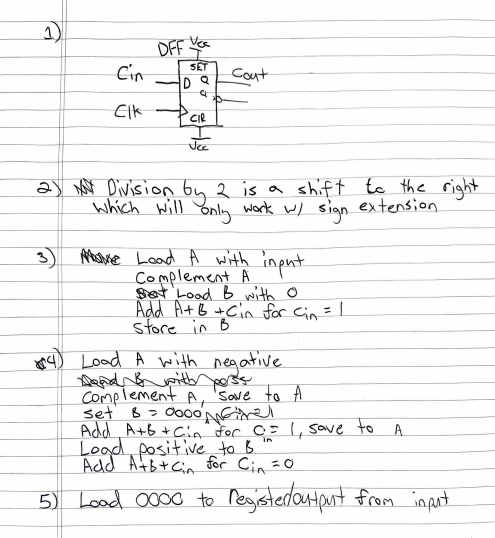 1)
DFF Vcc
SET
Cin D Q Cout
Q
Clk CLR
Vcc
2) Division by 2 is a shift to the right
which will only work w/ sign extension
3) Load A with input
Complement A
Load B with 0
Add A+B+Cin for Cin = 1
Store in B
4) Load A with negative
Complement A, save to A
set B = 0000
Add A+B+Cin for Cin = 1, save to A
Load positive to B
Add A+B+Cin for Cin = 0
5) Load 0000 to Register/output from input